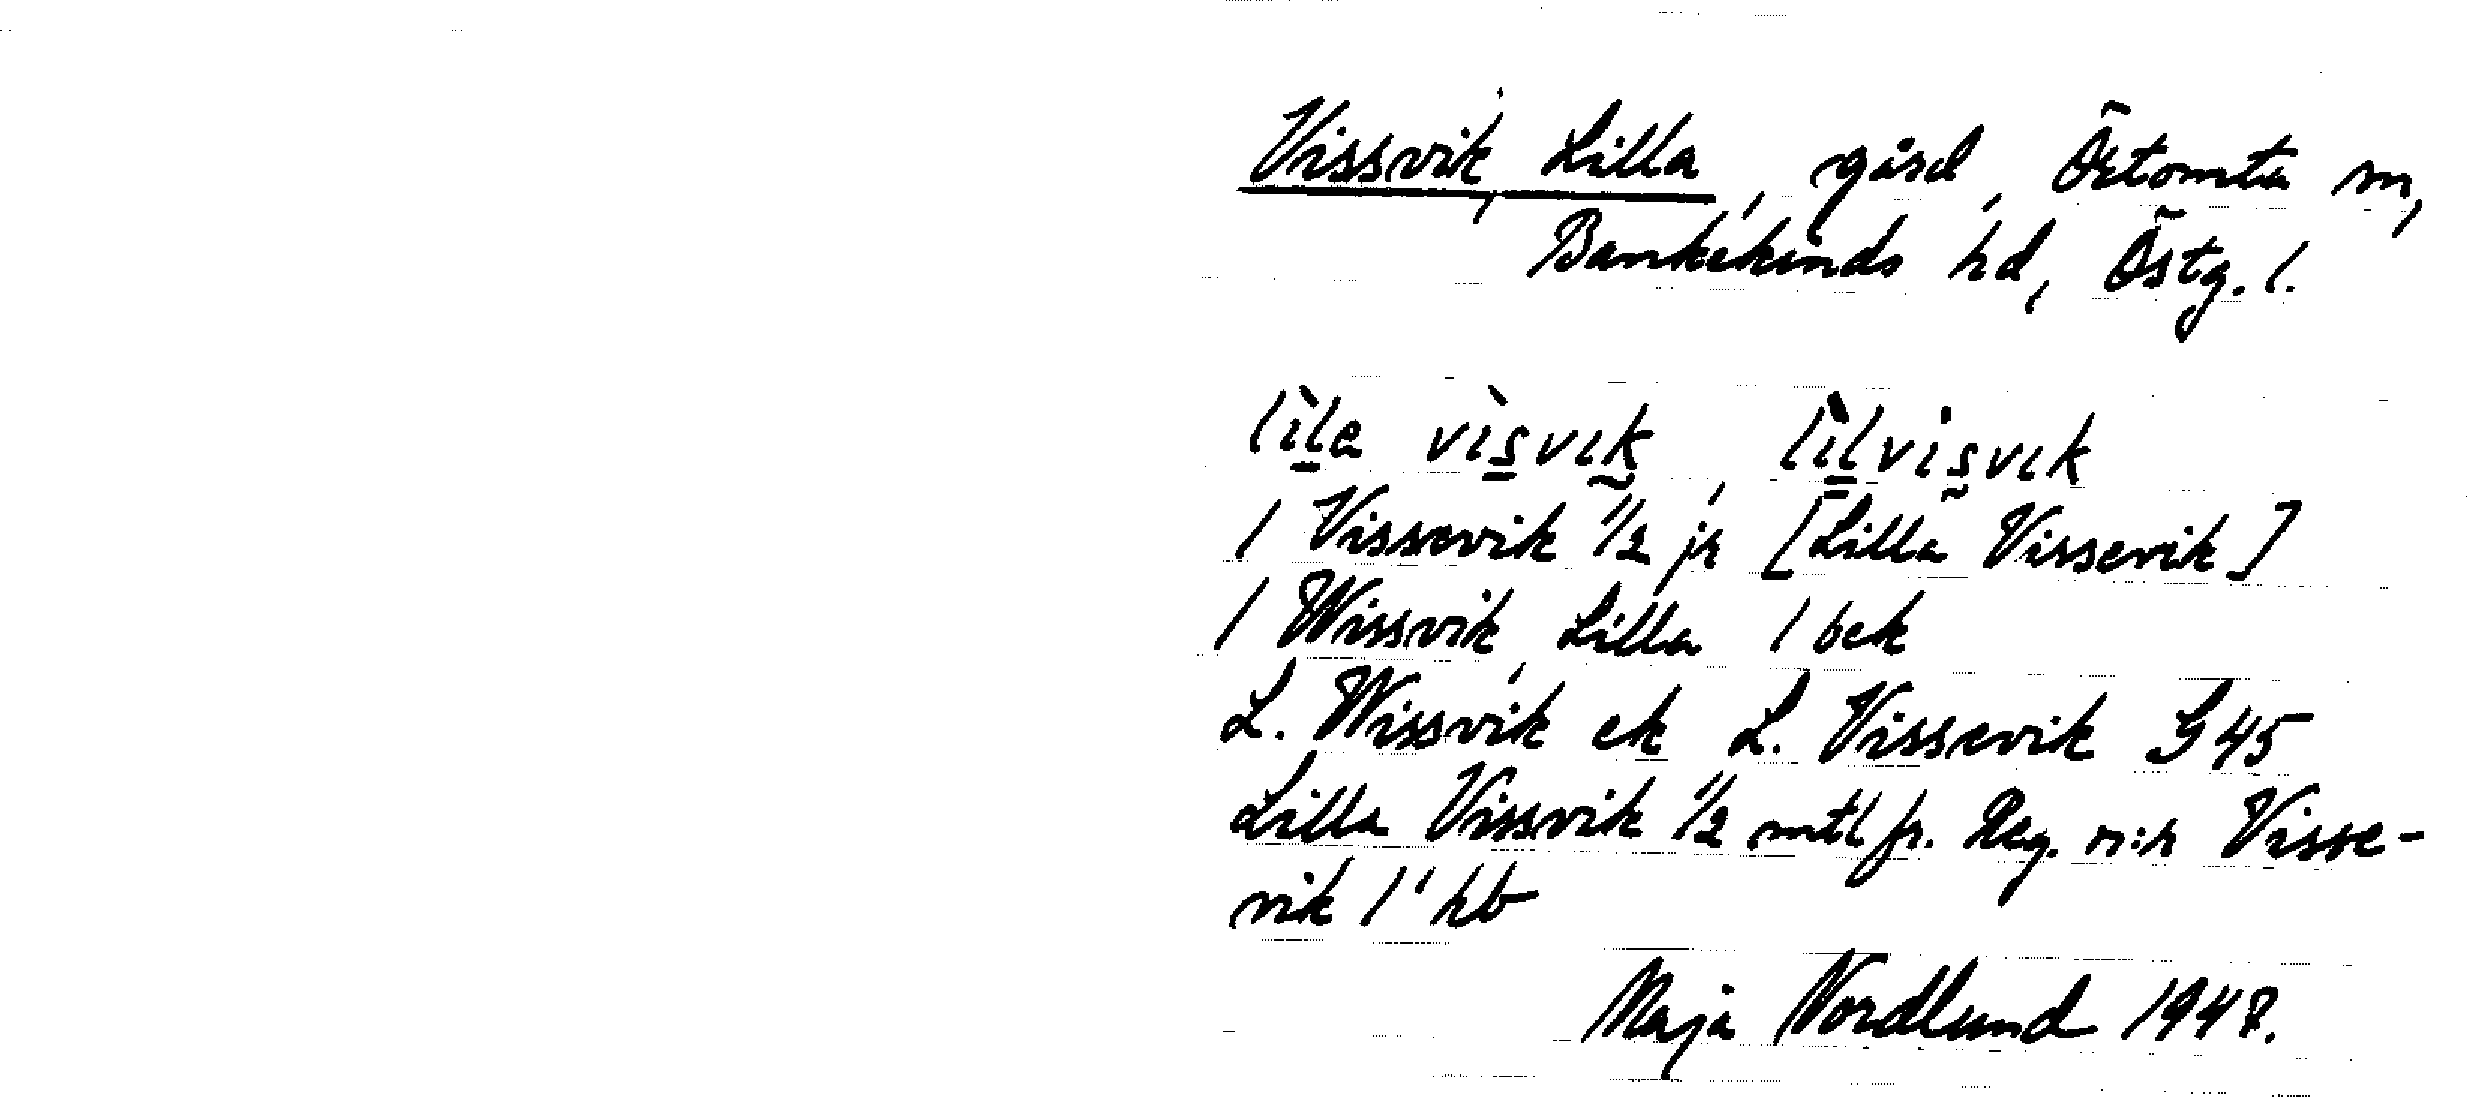 Vissvik, Lilla, gård, Örtomta sn,
Bankekinds hd, Östg. l.
lìla vìsvɩk, lìlvisvɩk
1 Vissevik 1/2 jr [Lilla Vissevik]
1 Wissvik, Lilla 1 bek
L. Wissvik ek L. Vissevik G 45
Lilla Vissvik 1/2 mtl fr. Reg. n:r Visse-
vik 1¹ hb
Maja Nordlund 1948.